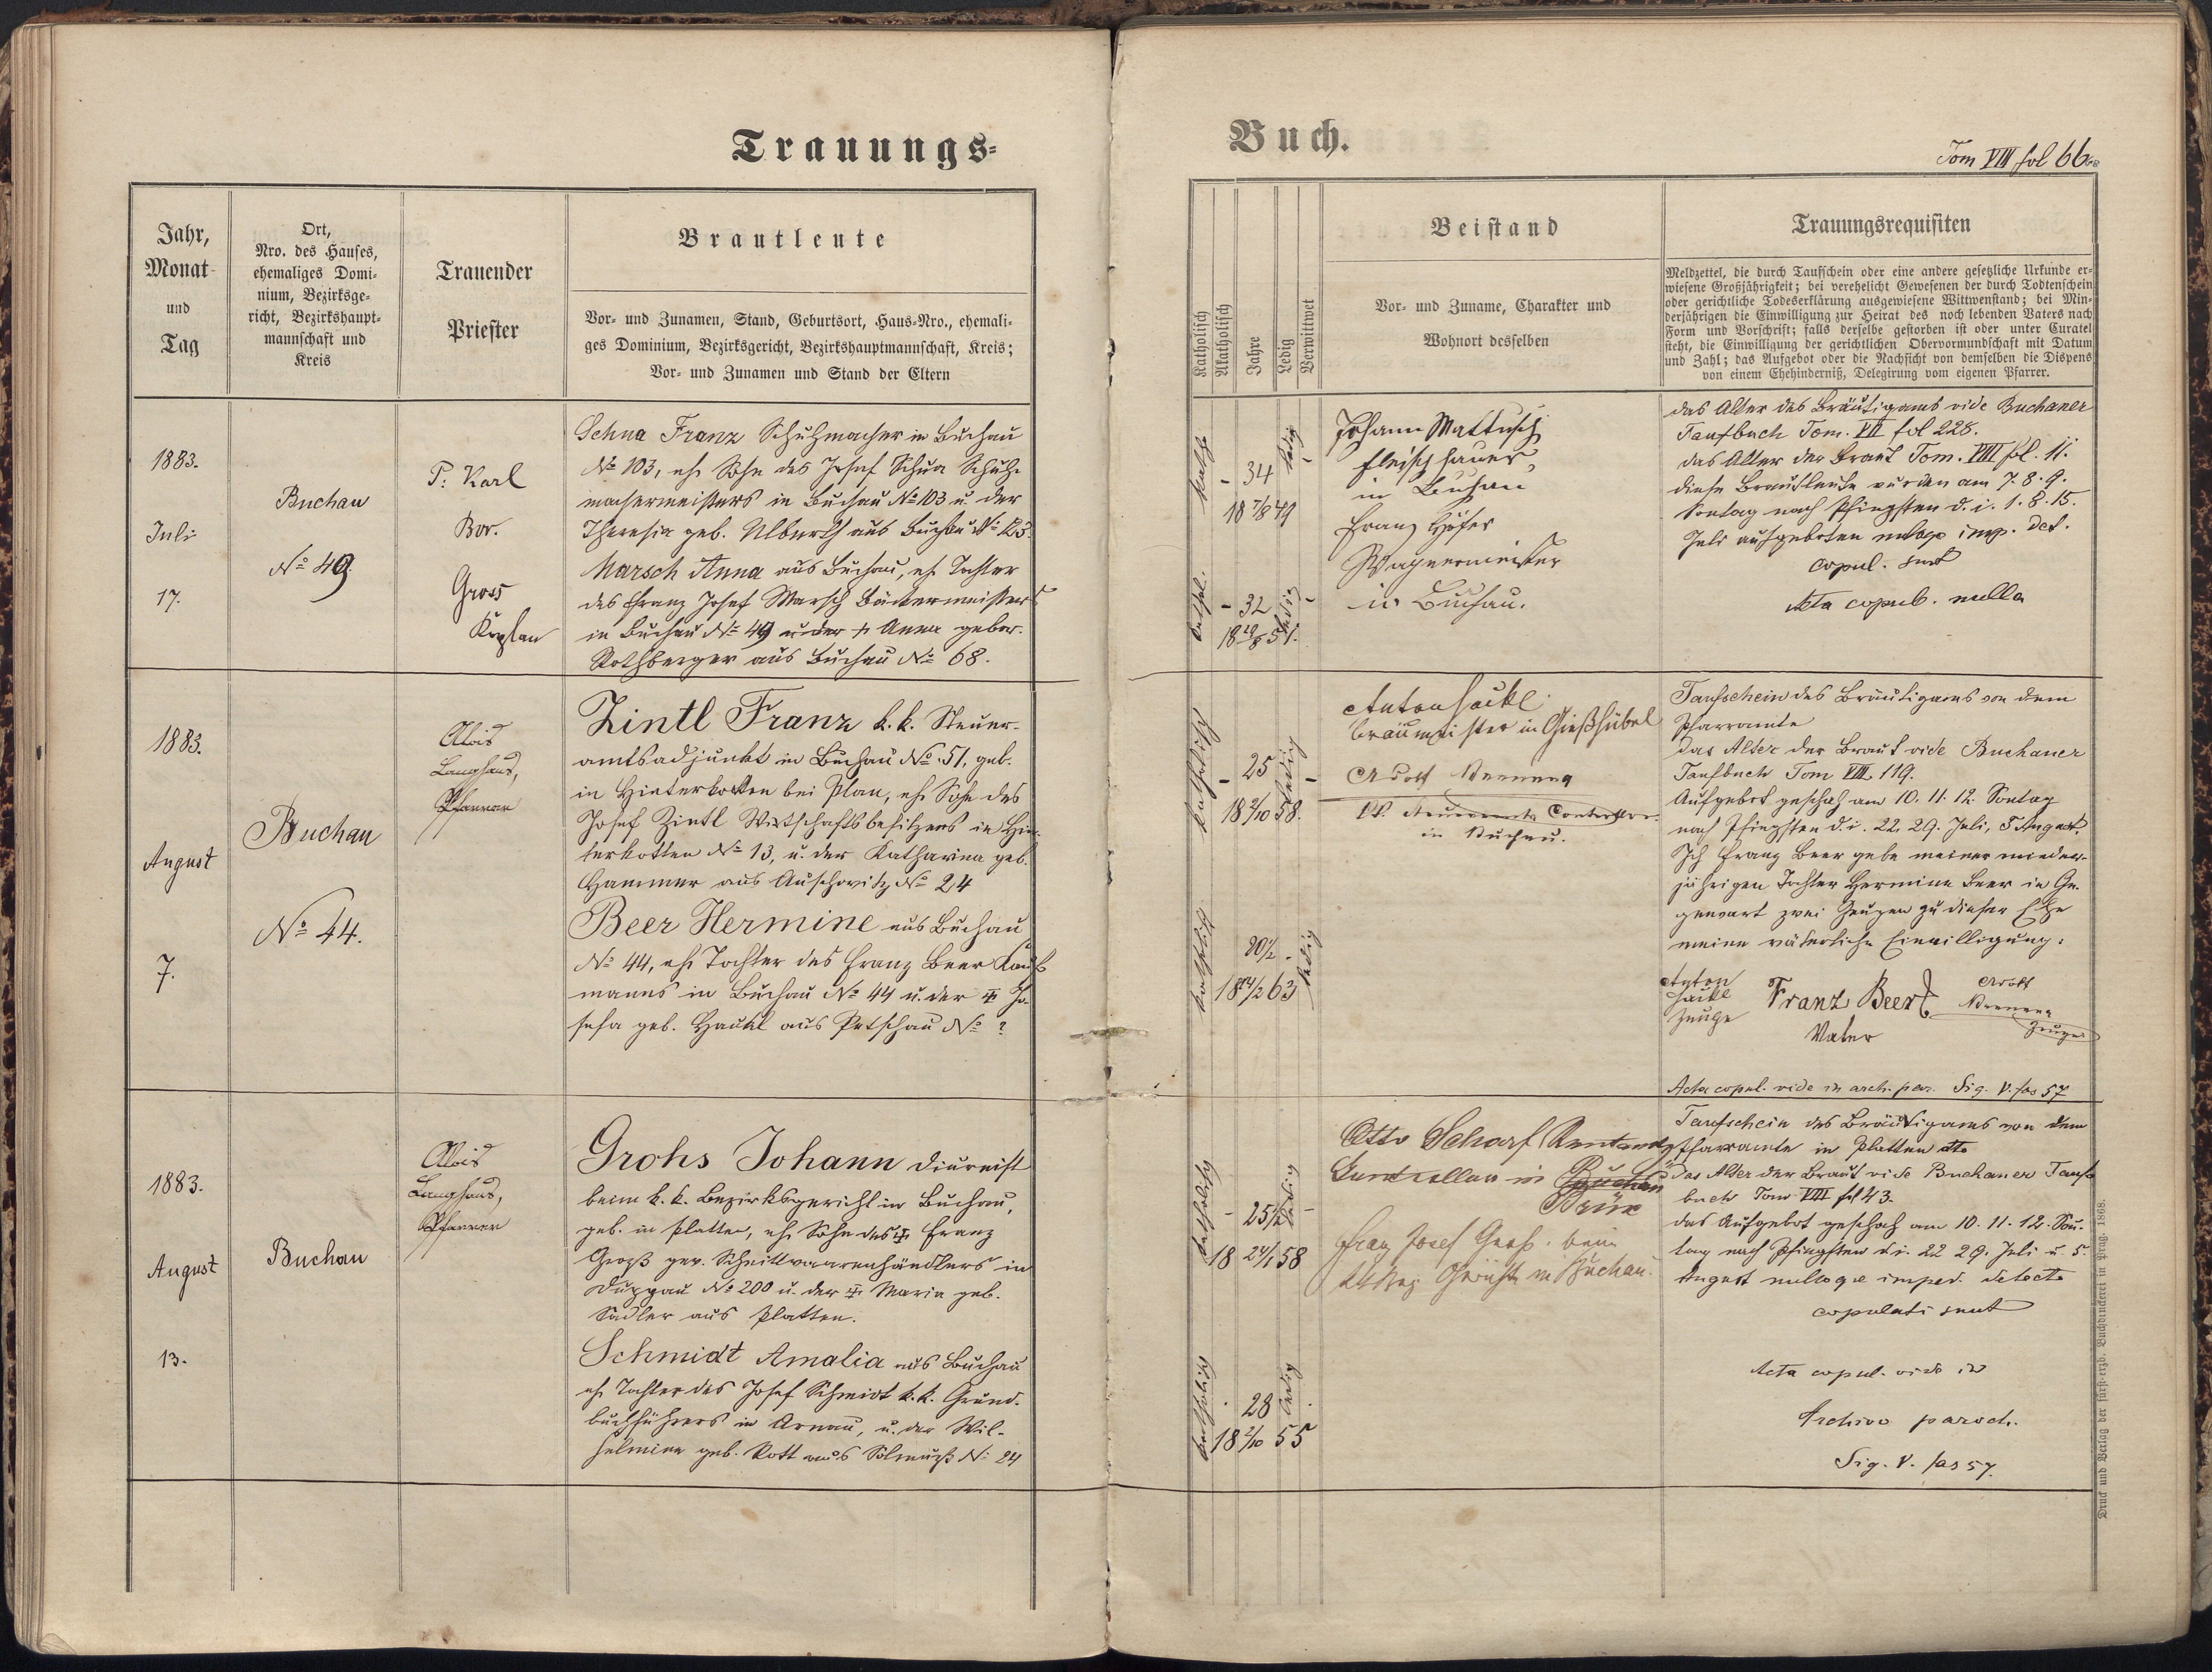 Trauungs-
Buch.
Tom VIII fol 66.
Jahr,
Monat
und
Tag
Ort,
Nro. des Hauses,
ehemaliges Domi-
nium, Bezirksge-
richt, Bezirkshaupt-
mannschaft und
Kreis
Trauender
Priester
Brautleute
Vor- und Zunamen, Stand, Geburtsort, Haus-Nro., ehemali-
ges Dominium, Bezirksgericht, Bezirkshauptmannschaft, Kreis;
Vor- und Zunamen und Stand der Eltern
Katholisch
Akatholisch
Jahre
Ledig
Verwittwet
Beistand
Vor- und Zuname, Charakter und
Wohnort desselben
Trauungsrequisiten
Meldzettel, die durch Taufschein oder eine andere gesetzliche Urkunde er-
wiesene Großjährigkeit; bei verehelicht Gewesenen der durch Todtenschein
oder gerichtliche Todeserklärung ausgewiesene Wittwenstand; bei Min-
derjährigen die Einwilligung zur Heirat des noch lebenden Vaters nach
Form und Vorschrift; falls derselbe gestorben ist oder unter Curatel
steht, die Einwilligung der gerichtlichen Obervormundschaft mit Datum
und Zahl; das Aufgebot oder die Nachsicht von demselben die Dispens
von einem Ehehinderniß, Delegirung vom eigenen Pfarrer.
1883.
Juli
17.
Buchau
No 49.
P. Karl
Bor.
Gross
Kaplan
Schua Franz Schuhmacher in Buchau
No 103, eh. Sohn des Josef Schua Schuh-
machermeisters in Buchau No 103 u. der
Theresia geb. aus Buchau No 123.
Marsch Anna aus Buchau, eh. Tochter
des Franz Josef Marsch Bäckermeisters
in Buchau No 49 u. der + Anna gebor.
Rothberger aus Buchau No 68.
kathol.
34
ledig
18 7/8 49
kathol.
32
ledig
18 28/8 51.
Johann Mattusch
Fleischhauer,
in Buchau
Franz Höfer
Wagnermeister
in Buchau.
das Alter des Bräutigams vide Buchauer
Taufbuch Tom. VII fol 228.
das Alter der Braut Tom. VIII fol. 11.
diese Brautleute wurden am 7. 8. 9.
Sontag nach Pfingsten d. i. 1. 8. 15.
Juli aufgeboten nuloqe imp. det.
copul. sunt
Acta copul. nulla
1883.
August
7.
Buchau
No 44.
Alois
Langhans,
Pfarrer
Zintl Franz k. k. Steuer-
amtsadjunkt in Buchau No. 51, geb.
in Hinterkotten bei Plan, eh. Sohn des
Josef Zintl Wirtschaftsbesitzers in Hin-
terkotten No 13, u. der Katharina geb.
Hammer aus Auschowitz No 24
Beer Hermine aus Buchau
No 44, eh. Tochter des Franz Beer Kauf-
manns in Buchau No 44 u. der + Jo-
sefa geb. Hackl aus Petschau No ?
katholisch
25
ledig
18 2/10 58.
katholisch
20 1/2
ledig
18 14/2 63
Anton Hackl
Bräumeister in Gießhübel
Adolf
k.k. Steueramts Controllor
in Buchau.
Taufschein des Bräutigams von dem
Pfarramte
das Alter der Braut vide Buchauer
Taufbuch Tom VIII. 119.
Aufgebot geschah am 10. 11. 12. Sontag
nach Pfingsten d. i. 22. 29. Juli, 5 August.
Ich Franz Beer gebe meiner minder-
jährigen Tochter Hermine Beer in Ge-
genwart zwei Zeugen zu dieser Ehe
meine väterliche Einwilligung:
Anton
Hackl
Zeuge
Franz Beer
Vater
Adolf
Zeuge
Acta copul. vide in arch. par. Sig. V. fas 57
1883.
August
13.
Buchau
Alois
Langhans,
Pfarrer
Grohs Johann Diurnist
beim k. k. Bezirksgericht in Buchau,
geb. in Platten, eh. Sohn des + Franz
Groß gew. Schnittwaarenhändlers in
Duppau No 200 u. der + Maria geb.
Sadler aus Platten.
Schmidt Amalia aus Buchau
eh. Tochter des Josef Schmidt k. k. Grund-
buchführers in Arnau, u. der Wil-
helmine geb. Kott aus No 24
katholisch
25 1/2
ledig
18 24/1 58
katholisch
28
ledig
18 2/10 55
Otto Scharf
in Buchau
Brüx
Franz Josef Groß beim
Gericht in Buchau.
Taufschein des Bräutigams von dem
Pfarramte in Platten dto
das Alter der Braut vide Buchauer Tauf-
buch Tom VIII fol 43.
das Aufgebot geschah am 10. 11. 12. Son-
tag nach Pfingsten d. i. 22 29. Juli u. 5.
August nulloqe imped. detecto
copulati sunt
Acta copul. vide in
Archivo paroch.
Sig. V. fas 57.
Druck und Verlag der fürst-erzb. Buchdruckerei in Prag. 1868.